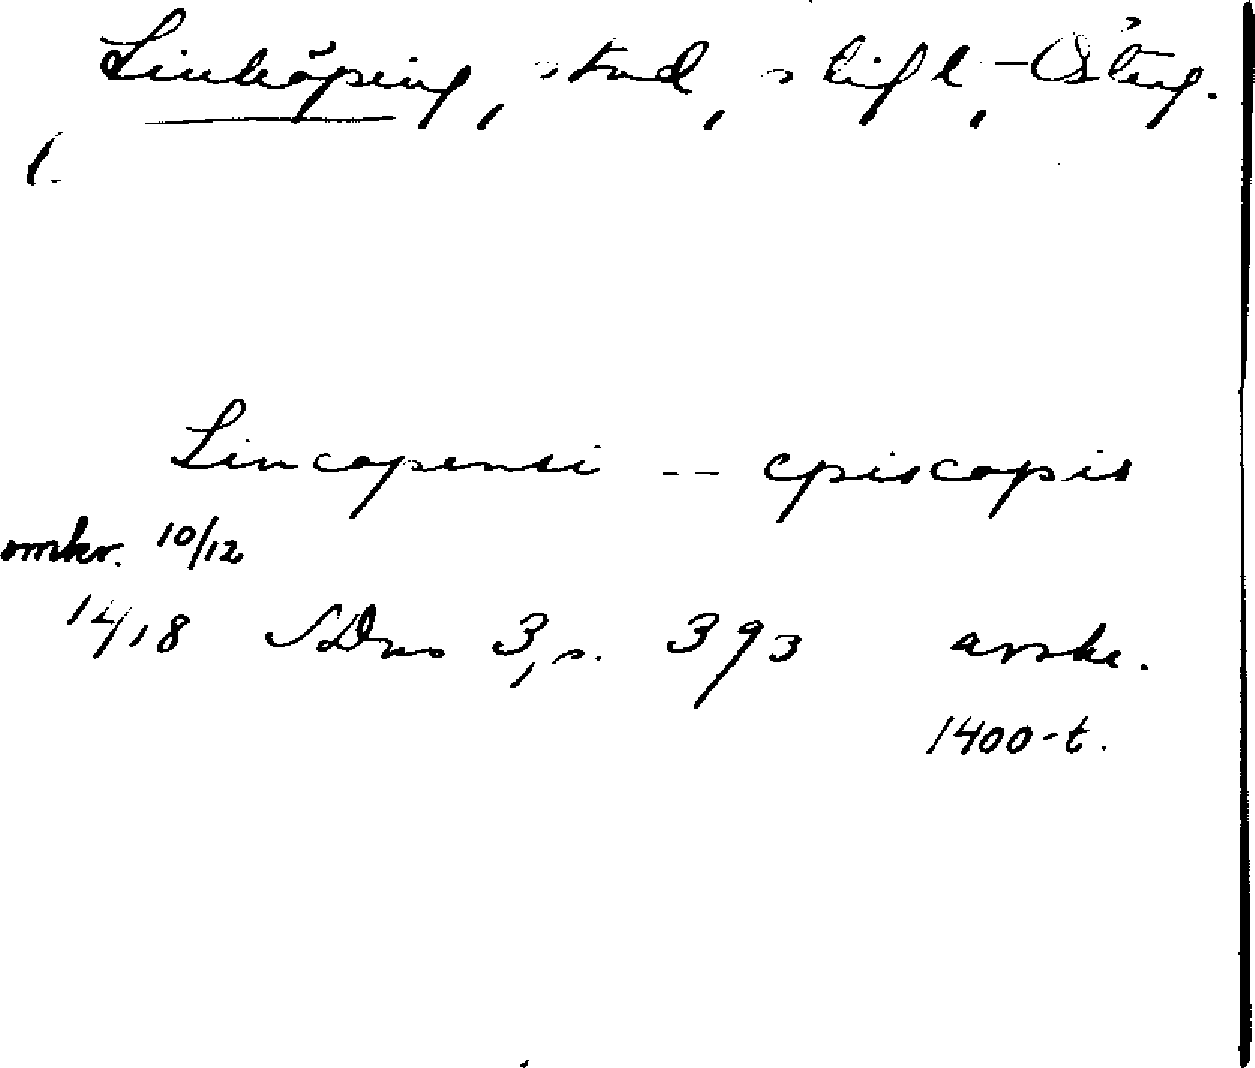 Linköping, stad, stift, Östg.
1.
Lincopensi -- episcopis
omkr. 10/12
1418 SDns 3, s. 393 avskr.
1400-t.